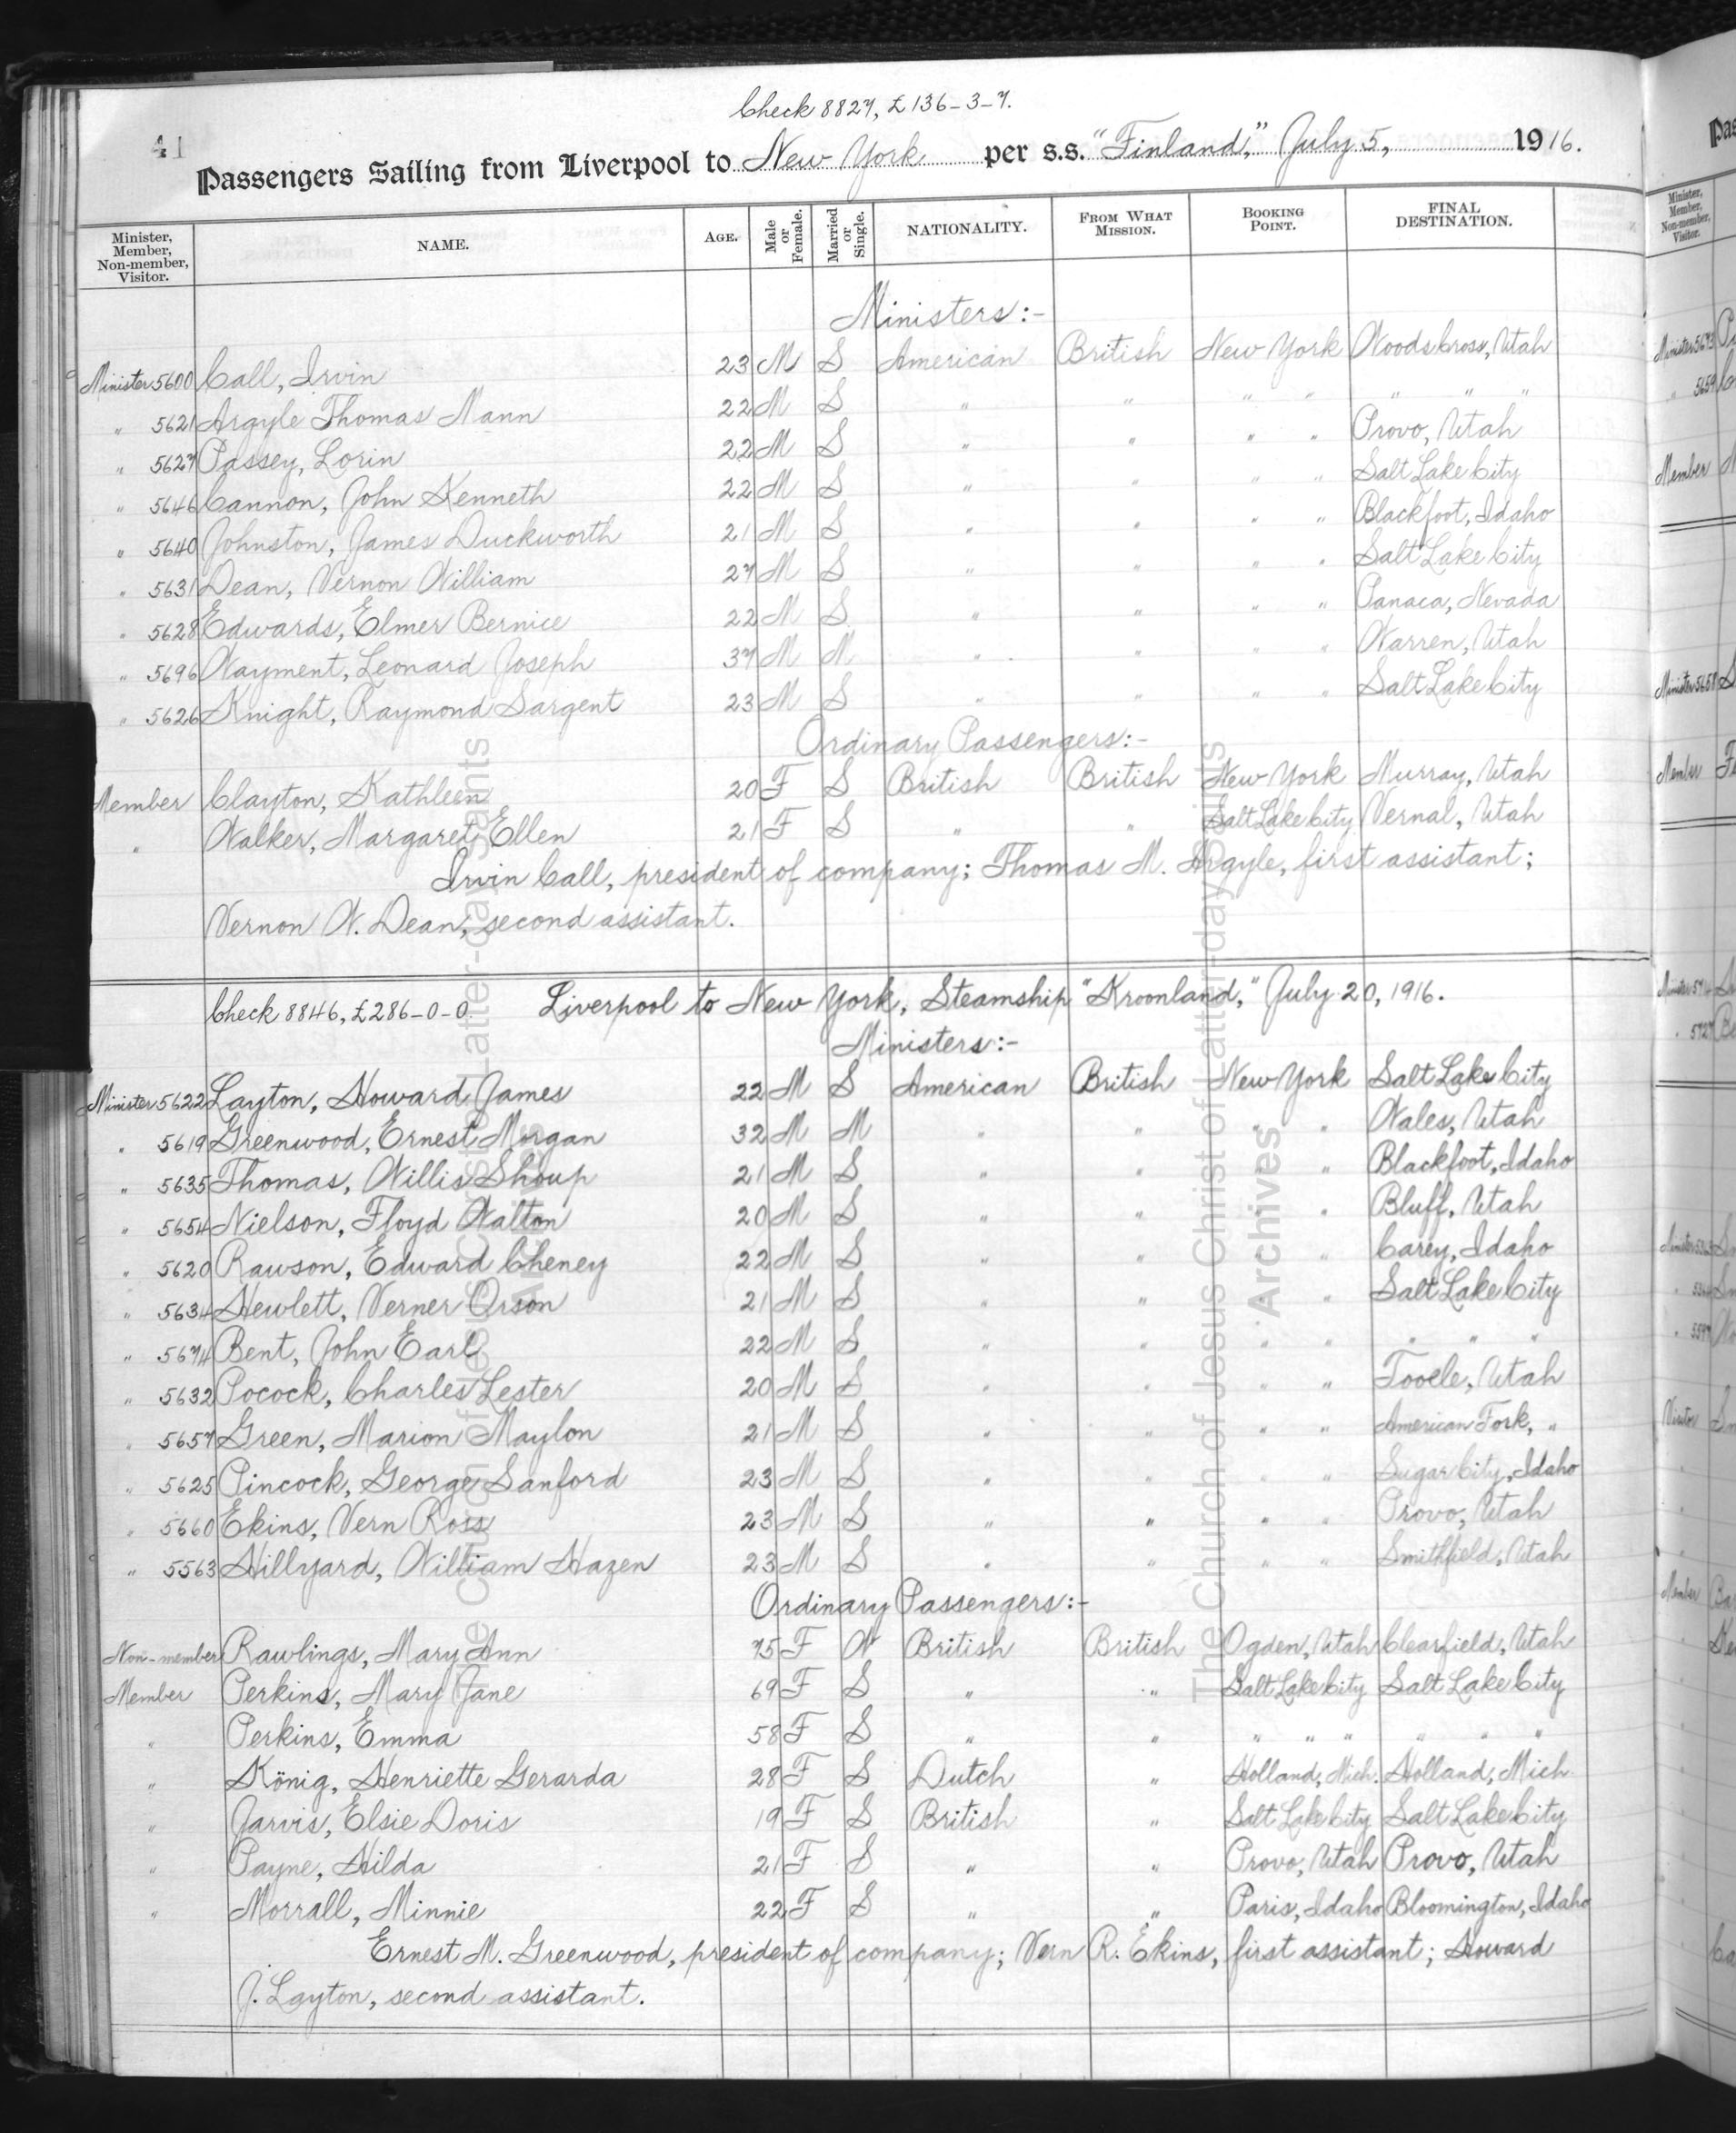 Check 8827, £136-3-7.
41
Passengers Sailing from Liverpool to New York per s.s. "Finland," July 5, 1916.
Minister, Member, Non-member, Visitor. NAME. AGE. Male or Female. Married or Single. NATIONALITY. FROM WHAT MISSION. BOOKING POINT. FINAL DESTINATION.
Ministers:-
Minister 5600 Call, Irvin 23 M S American British New York Woods Cross, Utah
" 5621 Argyle Thomas Mann 22 M S " " " " " " "
" 5627 Passey, Lorin 22 M S " " " " Provo, Utah
" 5646 Cannon, John Kenneth 22 M S " " " " Salt Lake City
" 5640 Johnston, James Duckworth 21 M S " " " " Blackfoot, Idaho
" 5631 Dean, Vernon William 27 M S " " " " Salt Lake City
" 5628 Edwards, Elmer Bernice 22 M S " " " " Panaca, Nevada
" 5696 Wayment, Leonard Joseph 37 M M " " " " Warren, Utah
" 5626 Knight, Raymond Sargent 23 M S " " " " Salt Lake City
Ordinary Passengers:-
Member Clayton, Kathleen 20 F S British British New York Murray, Utah
" Walker, Margaret Ellen 21 F S " " Salt Lake City Vernal, Utah
Irvin Call, president of company; Thomas M. Argyle, first assistant;
Vernon W. Dean, second assistant.
Check 8846, £286-0-0. Liverpool to New York, Steamship "Kroonland," July 20, 1916.
Ministers:-
Minister 5622 Layton, Howard James 22 M S American British New York Salt Lake City
" 5619 Greenwood, Ernest Morgan 32 M M " " " " Wales, Utah
" 5635 Thomas, Willis Shoup 21 M S " " " " Blackfoot, Idaho
" 5654 Nielson, Floyd Walton 20 M S " " " " Bluff, Utah
" 5620 Rawson, Edward Cheney 22 M S " " " " Carey, Idaho
" 5634 Hewlett, Verner Orson 21 M S " " " " Salt Lake City
" 5674 Bent, John Earl 22 M S " " " " " " "
" 5632 Pocock, Charles Lester 20 M S " " " " Tooele, Utah
" 5657 Green, Marion Maylon 21 M S " " " " American Fork, "
" 5625 Pincock, George Sanford 23 M S " " " " Sugar City, Idaho
" 5660 Ekins, Vern Ross 23 M S " " " " Provo, Utah
" 5563 Hillyard, William Hazen 23 M S " " " " Smithfield, Utah
Ordinary Passengers:-
Non-member Rawlings, Mary Ann 75 F W British British Ogden, Utah Clearfield, Utah
Member Perkins, Mary Jane 69 F S " " Salt Lake City Salt Lake City
" Perkins, Emma 58 F S " " " " " " " "
" König, Henriette Gerarda 28 F S Dutch " Holland, Mich. Holland, Mich.
" Jarvis, Elsie Doris 19 F S British " Salt Lake City Salt Lake City
" Payne, Hilda 21 F S " " Provo, Utah Provo, Utah
" Morrall, Minnie 22 F S " " Paris, Idaho Bloomington, Idaho
Ernest M. Greenwood, president of company; Vern R. Ekins, first assistant; Howard
J. Layton, second assistant.
The Church of Jesus Christ of Latter-day Saints
Archives
The Church of Jesus Christ of Latter-day Saints
Archives